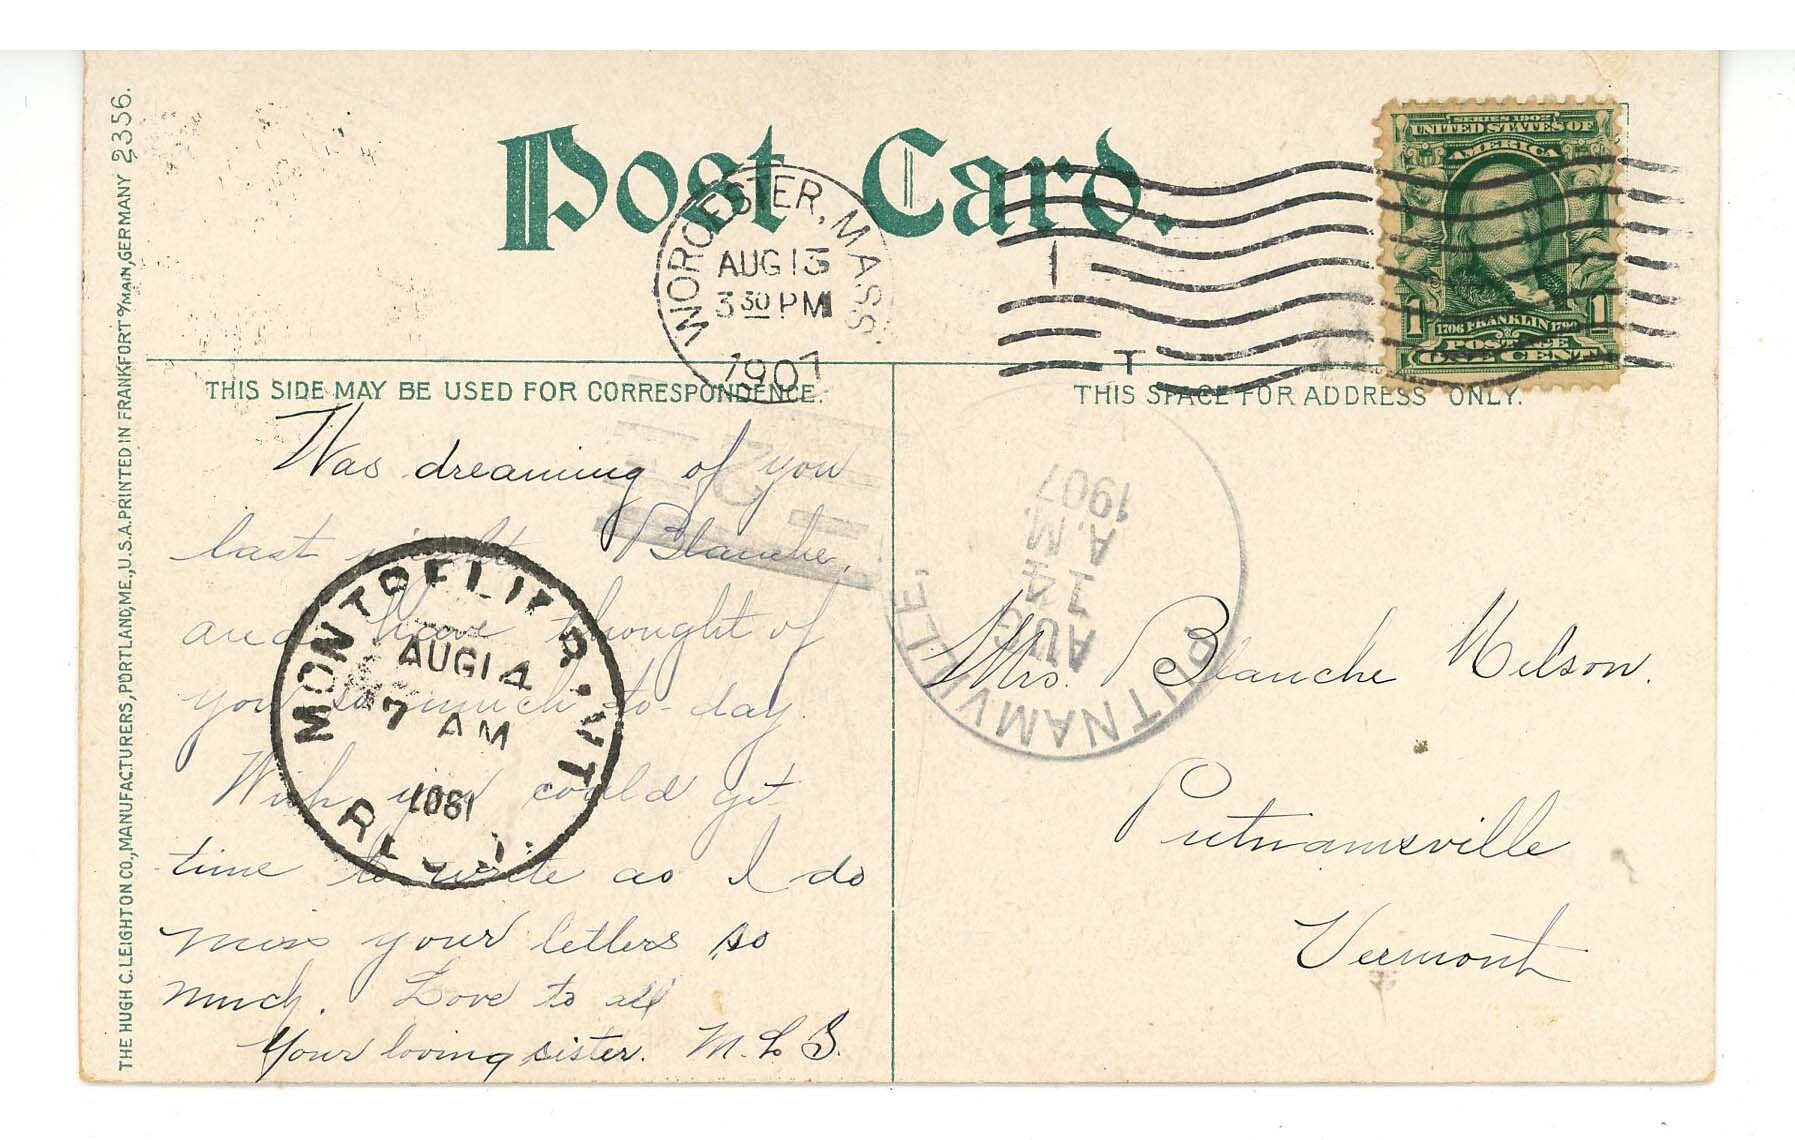 Post Card.
WORCESTER, MASS.
AUG 13
3 30 PM
1907
1
T
SERIES 1902
UNITED STATES OF
AMERICA
1 1
1706 FRANKLIN 1790
POSTAGE
ONE CENT
THE HUGH C. LEIGHTON CO., MANUFACTURERS, PORTLAND, ME., U.S.A. PRINTED IN FRANKFORT o/MAIN, GERMANY 2356.
THIS SIDE MAY BE USED FOR CORRESPONDENCE.
Was dreaming of you
last night Blanche,
and have thought of
you so much to-day.
Wish you could get
time to write as I do
miss your letters so
much. Love to all
Your loving sister. M. L. S.
2
MONTPELIER, VT.
AUG 14
7 AM
1907
THIS SPACE FOR ADDRESS ONLY.
PUTNAMVILLE,
AUG
14
A.M.
1907
Mrs. Blanche Nelson.
Putnamsville
Vermont